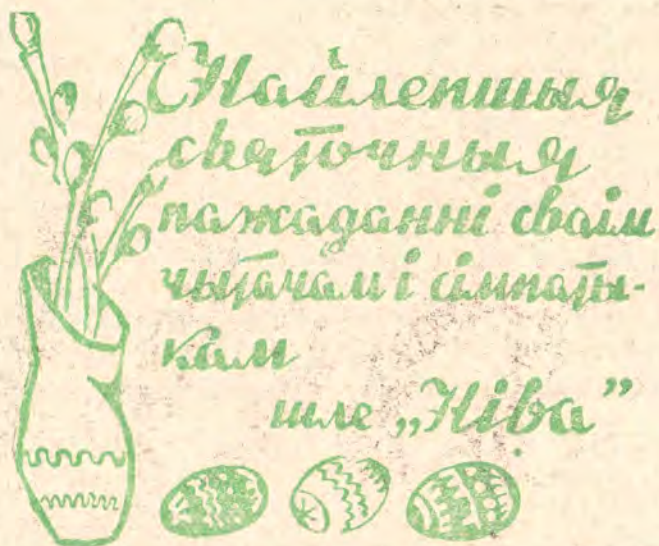 Найлепшыя
святочныя
пажаданні сваім
чытачам і сімпаты-
кам
шле „Ніва”